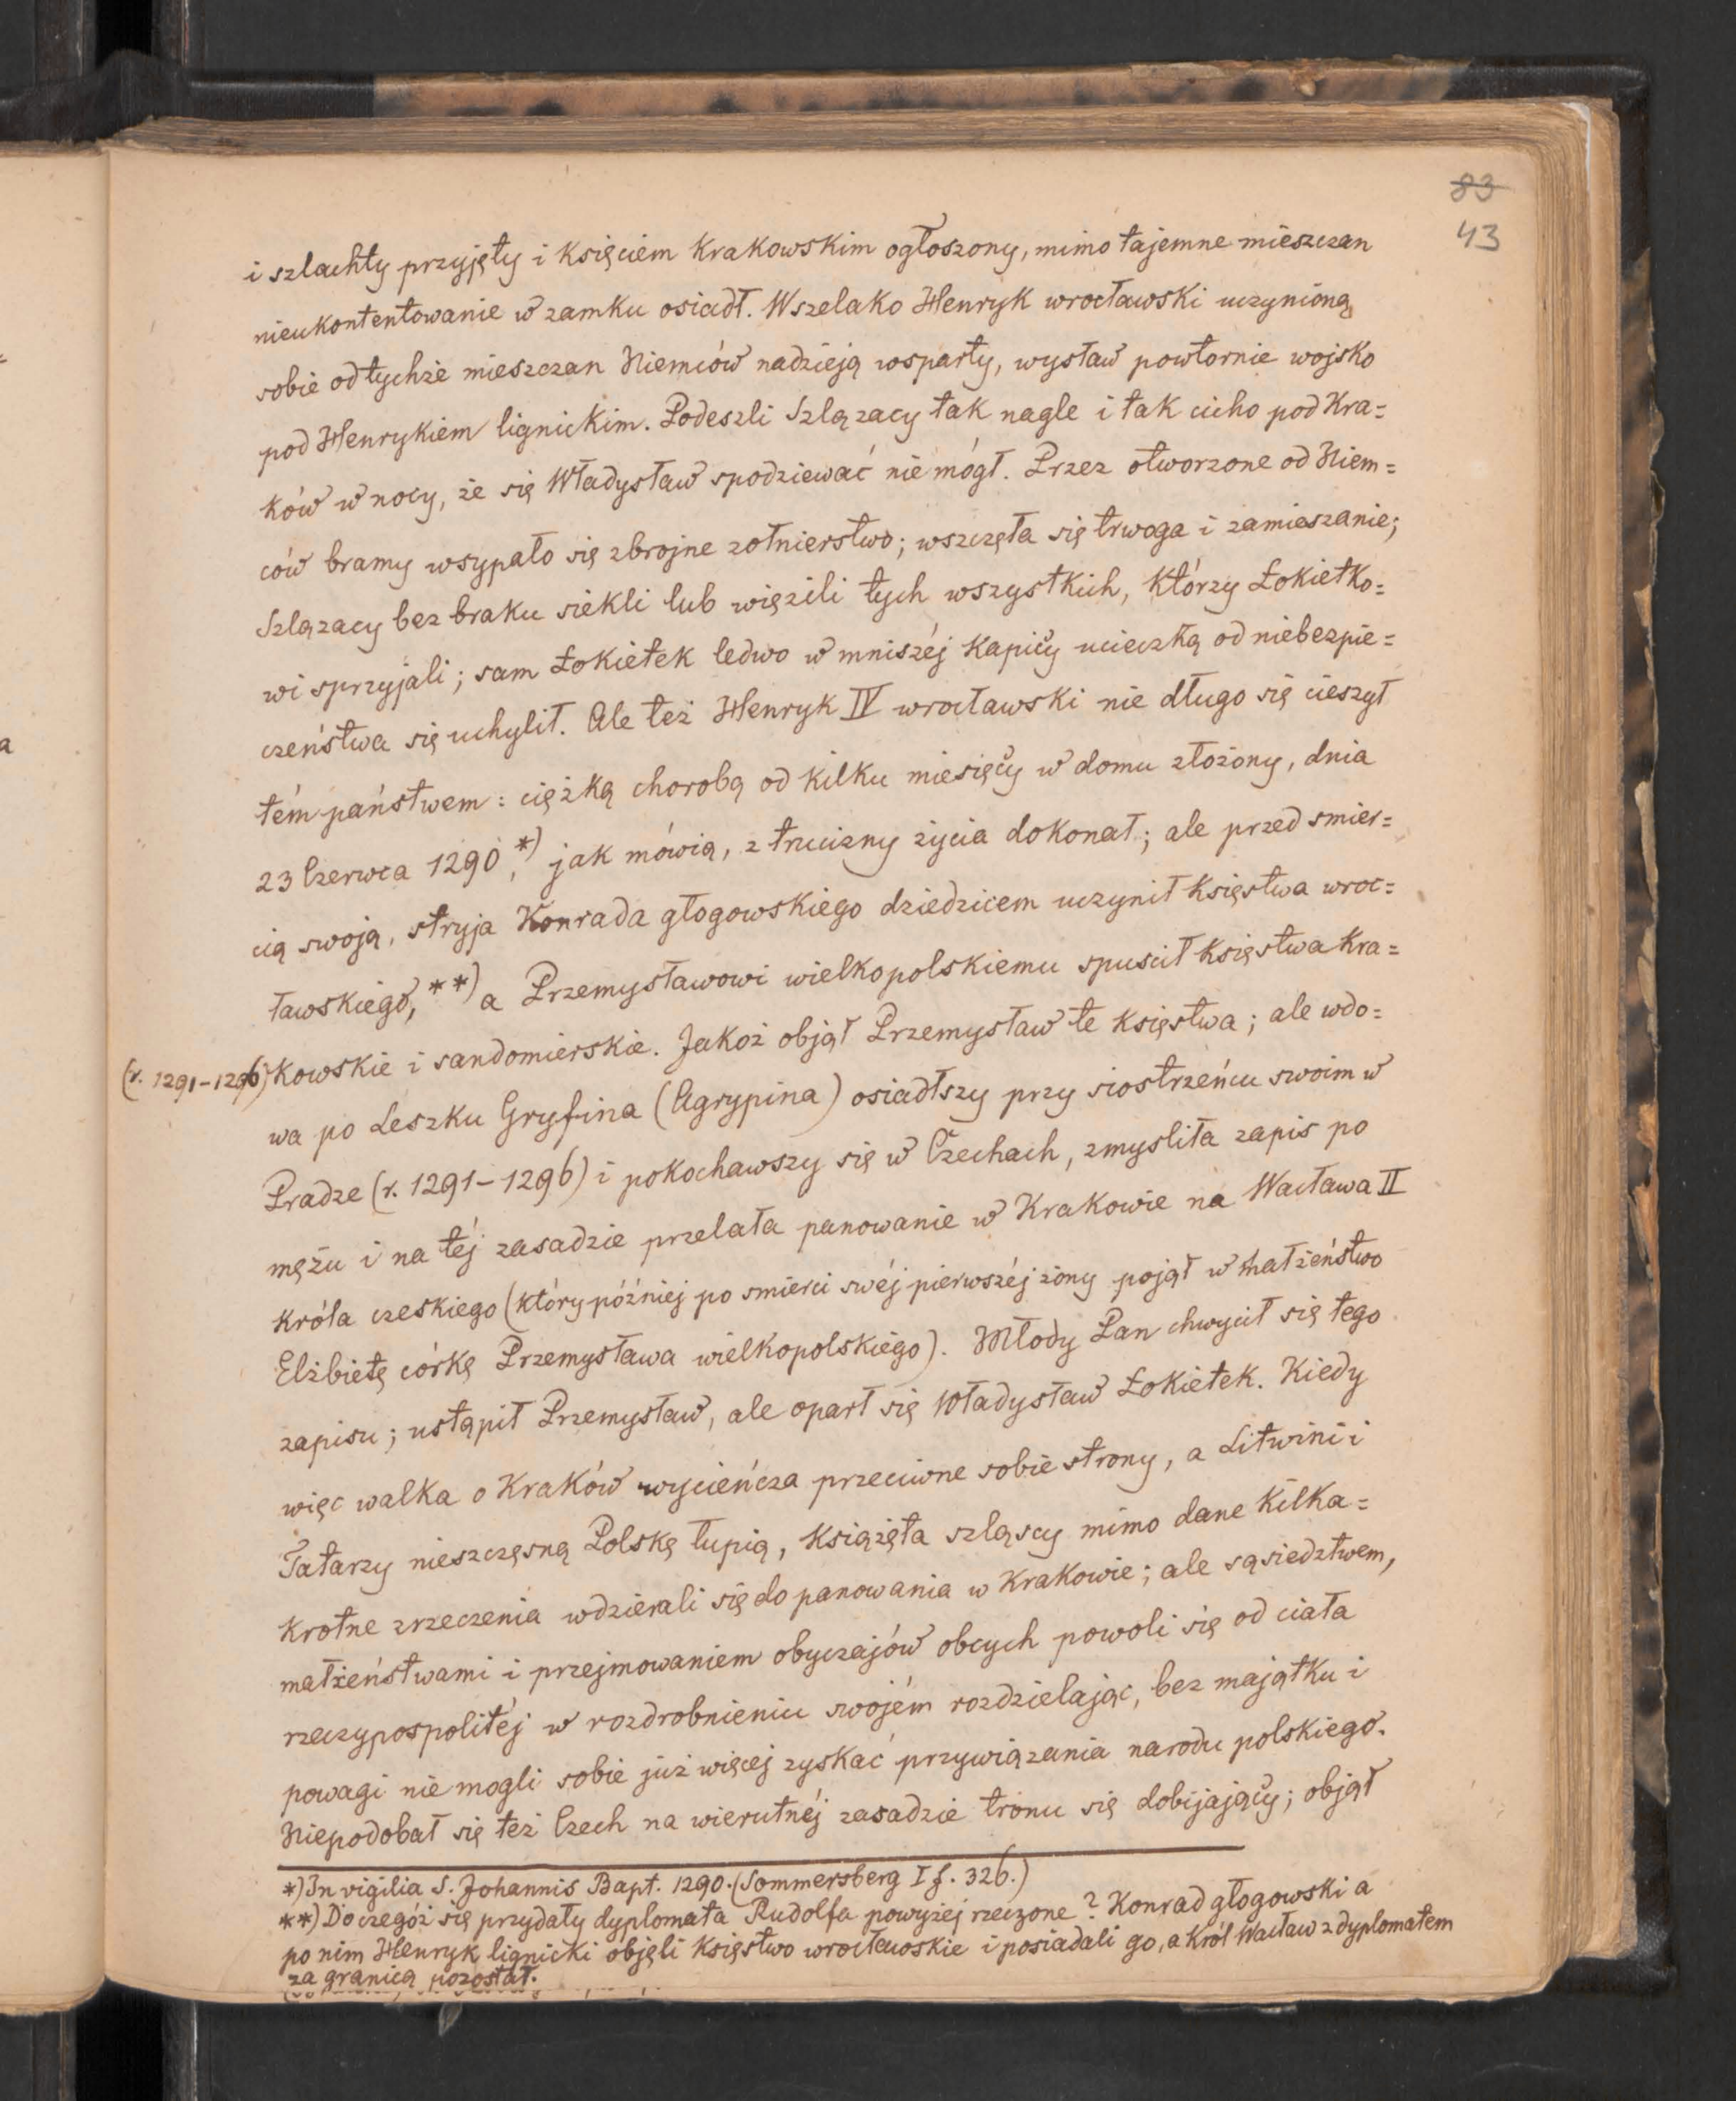 83
43
i szlachty przyjęty i księciem krakowskim ogłoszony, mimo tajemne mieszczan
nieukontentowanie w zamku osiadł. Wszelako Henryk wrocławski uczynioną
sobie od tychże mieszczan Niemców nadzieją wsparty, wysław powtornie wojsko
pod Henrykiem lignickim. Podeszli Szlązacy tak nagle i tak cicho pod Kra=
ków w nocy, że się Władysław spodziewać nie mógł. Przez otworzone od Niem=
ców bramy wsypało się zbrojne zołnierstwo; wszczęła się trwoga i zamieszanie;
Szlązacy bez braku siekli lub więzili tych wszystkich, którzy Łokietko=
wi sprzyjali; sam Łokietek ledwo w mniszéj kapicy ucieczką od niebezpie=
czeństwa się uchylił. Ale też Henryk IV wrocławski nie długo się cieszył
tém państwem: ciężką chorobą od kilku miesięcy w domu złożony, dnia
23 Czerwca 1290,*) jak mówią, z trucizny życia dokonał; ale przed smier=
cią swoją, stryja Konrada głogowskiego dziedzicem uczynił księstwa wroc=
ławskiego,**) a Przemysławowi wielkopolskiemu spuscił księstwa kra=
(r. 1291-1296) kowskie i sandomierskie. Jakoż objął Przemysław te księstwa; ale wdo=
wa po Leszku Gryfina (Agrypina) osiadłszy przy siostrzeńcu swoim w
Pradze (r. 1291-1296) i pokochawszy się w Czechach, zmysliła zapis po
mężu i na téj zasadzie przelała panowanie w Krakowie na Wacława II
króla czeskiego (który później po smierci swéj pierwszéj żony pojął w małżeństwo
Elżbietę córkę Przemysława wielkopolskiego). Młody Pan chwycił się tego
zapisu; ustąpił Przemysław, ale oparł się Władysław Łokietek. Kiedy
więc walka o Kraków wycieńcza przeciwne sobie strony, a Litwini i
Tatarzy nieszczęsną Polskę łupią, książęta szląscy mimo dane kilka=
krotne zrzeczenia wdzierali się do panowania w Krakowie; ale sąsiedztwem,
małżeństwami i przejmowaniem obyczajów obcych powoli się od ciała
rzeczypospolitéj w rozdrobnieniu swojém rozdzielając, bez majątku i
powagi nie mogli sobie już więcej zyskać przywiązania narodu polskiego.
Niepodobał się też Czech na wierutnéj zasadzie tronu się dobijający; objął
*) In vigilia S. Johannis Bapt. 1290. (Sommersberg I f. 326.)
**) Do czegóż się przydały dyplomata Rudolfa powyżej rzeczone? Konrad głogowski a
po nim Henryk lignicki objęli księstwo wrocławskie i posiadali go, a król Wacław z dyplomatem
za granicą pozostał.